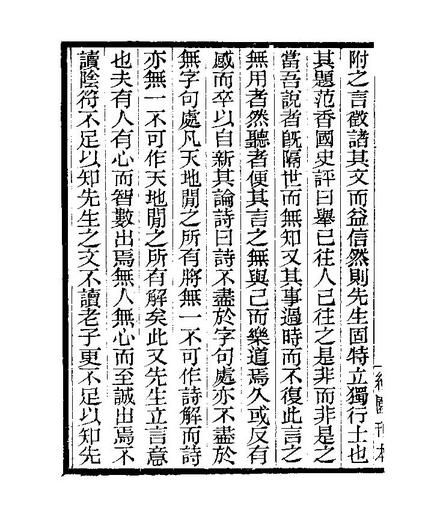 附之言徵諸其文而益信然則先生固特立獨行士也
其題范香國史評曰舉已往人已往之是非而非是之
當吾說者旣隔世而無知又其事過時而不復此言之
無用者然聽者便其言之無與己而樂道焉久或反有
感而卒以自新其論詩曰詩不盡於字句處亦不盡於
無字句處凡天地閒之所有將無一不可作詩解而詩
亦無一不可作天地閒之所有解矣此又先生立言意
也夫有人有心而智數出焉無人無心而至誠出焉不
讀陰符不足以知先生之文不讀老子更不足以知先